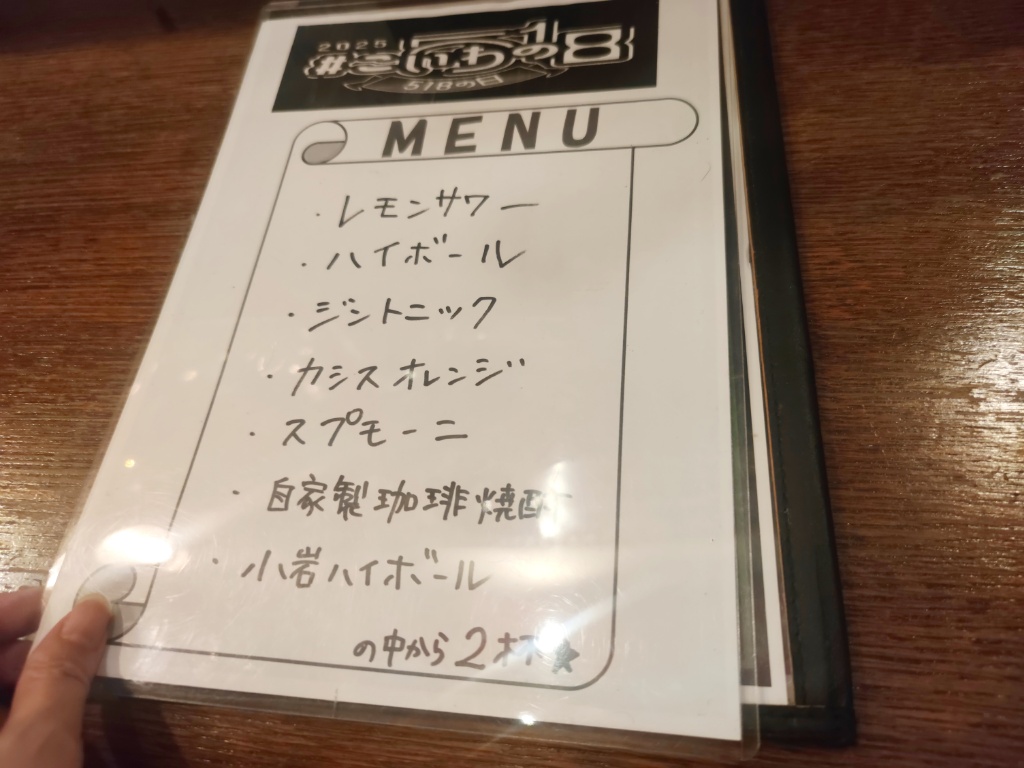 2025
#こいわの日
518の日
MENU
・レモンサワー
・ハイボール
・ジントニック
・カシスオレンジ
・スプモーニ
・自家製珈琲焼酎
・小岩ハイボール
の中から2杯★